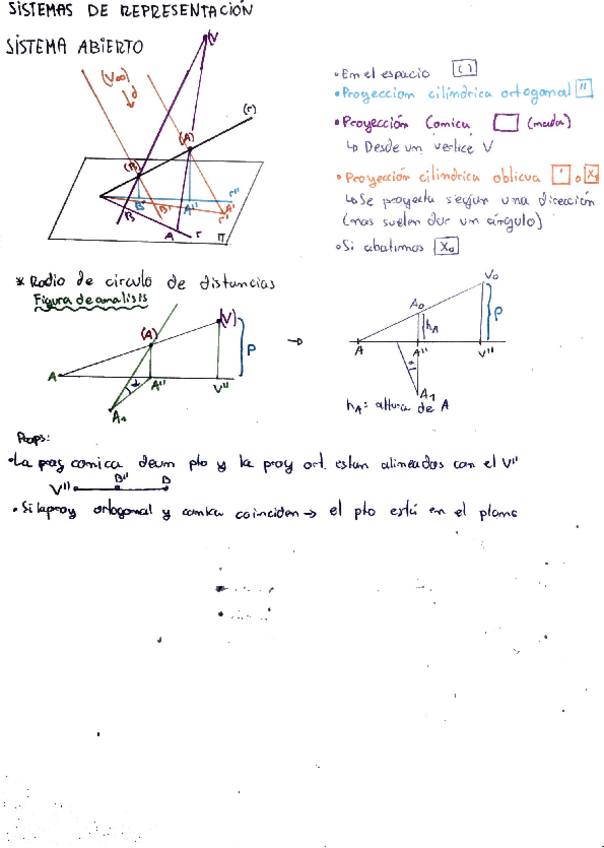 SISTEMAS DE REPRESENTACIÓN
SISTEMA ABIERTO
(V
(V∞)
d
(r)
(A)
(B)
B"
r"
B
B'
A"
A'
r'
A
r
π
• En el espacio ( )
• Proyección cilíndrica ortogonal "
• Proyección Cónica (nada)
↳ Desde un vertice V
• Proyección cilíndrica oblicua ' o X₁
↳ Se proyecta según una dirección
(nos suelen dar un ángulo)
• Si abatimos X₀
* Radio de circulo de distancias
Figura de analisis
(A)
(V)
P
A
α
A"
V"
A₁
→
V₀
A₀
hA
P
A
A"
V"
A₁
hA: altura de A
Props:
• La proy conica de un pto y la proy ort. estan alineados con el V"
V" B" B
• Si la proy ortogonal y conica coinciden → el pto está en el plano